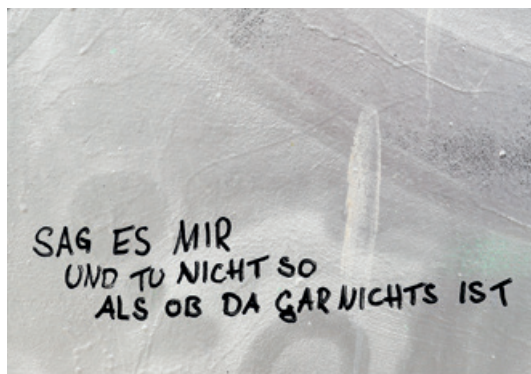 SAG ES MIR
UND TU NICHT SO
ALS OB DA GARNICHTS IST